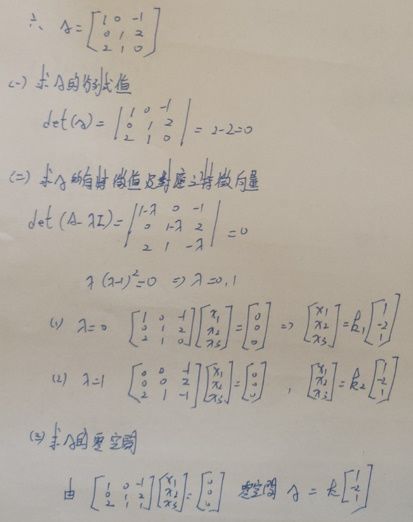 六、 A = [1 0 -1; 0 1 2; 2 1 0]
(一) 求A的行列式值
det(A) = |1 0 -1; 0 1 2; 2 1 0| = 2-2=0
(二) 求A的所有特徵值及對應之特徵向量
det(A-λI) = |1-λ 0 -1; 0 1-λ 2; 2 1 -λ| = 0
λ(λ-1)²=0 ⇒ λ=0,1
(1) λ=0 [1 0 -1; 0 1 2; 2 1 0][x₁; x₂; x₃] = [0; 0; 0] ⇒ [x₁; x₂; x₃] = k₁[1; -2; 1]
(2) λ=1 [0 0 -1; 0 0 2; 2 1 -1][x₁; x₂; x₃] = [0; 0; 0] , [x₁; x₂; x₃] = k₂[1; -2; 1]
(三) 求A的零空間
由 [1 0 -1; 0 1 2; 2 1 1][x₁; x₂; x₃] = [0; 0; 0] 零空間 A = k[1; -2; 1]